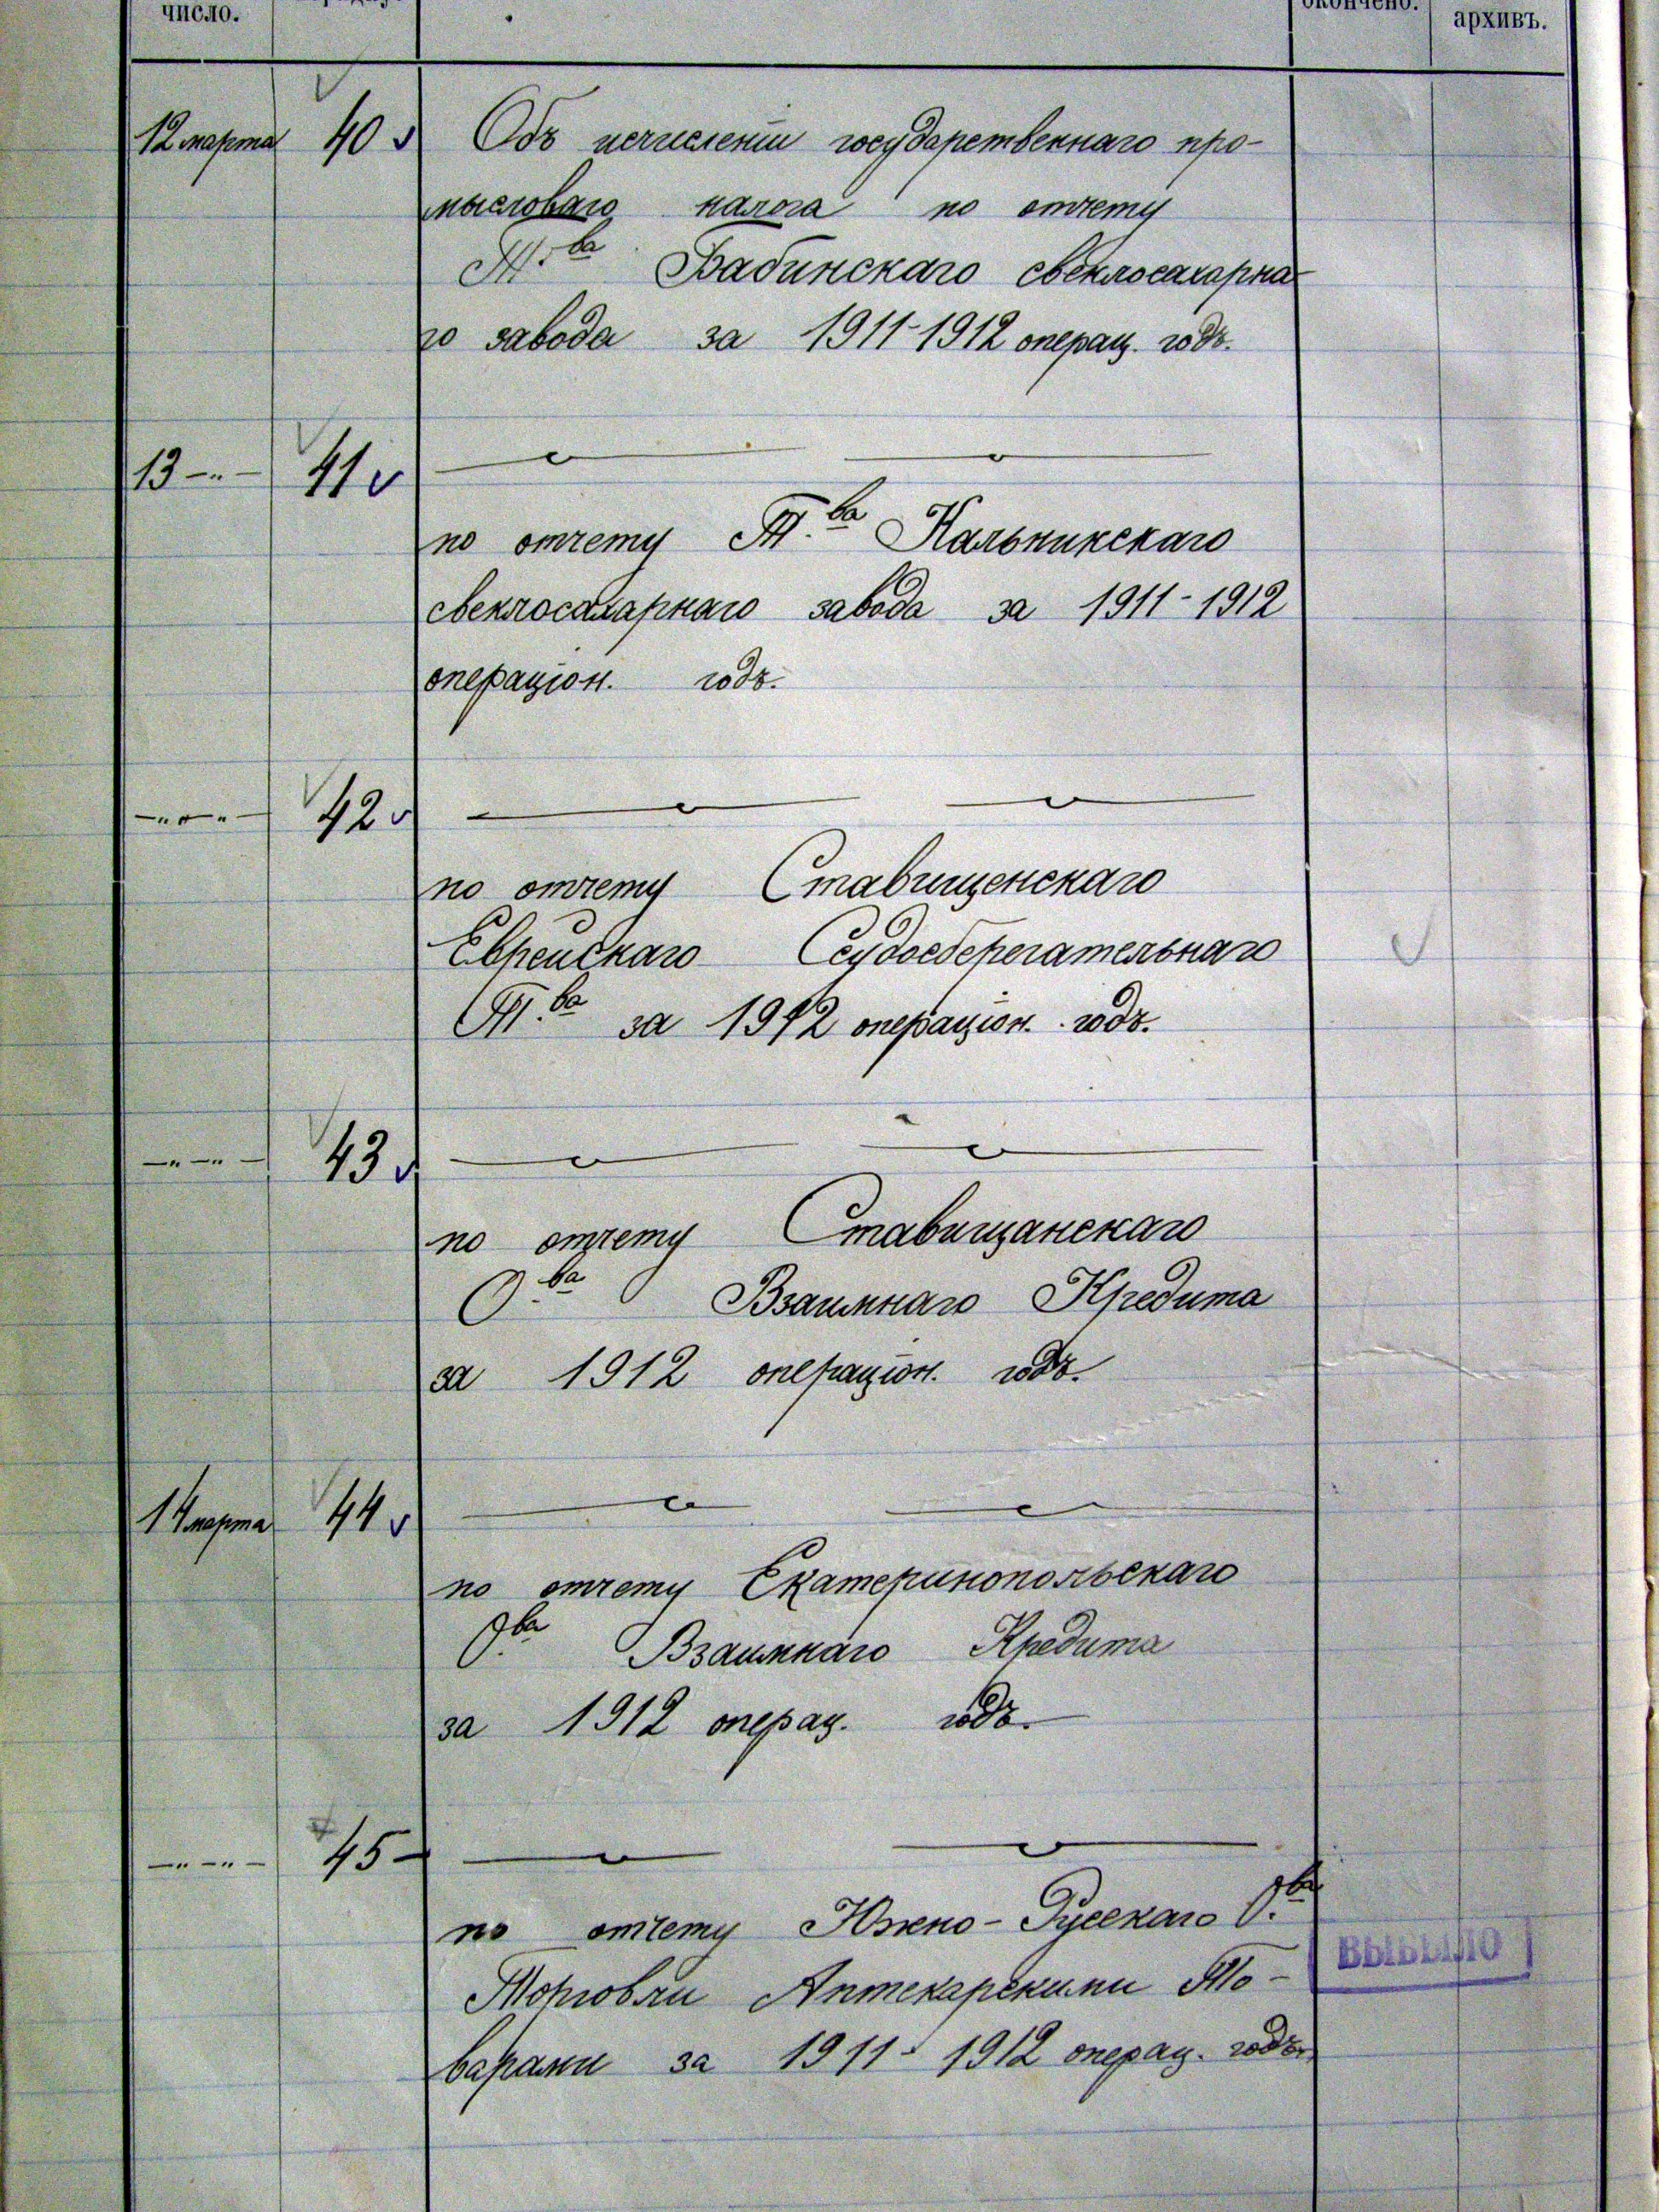 число.
окончено.
архивъ.
12 марта 40 Объ исчисленіи государственнаго про-
мысловаго налога по отчету
Т.ва Бабинскаго свеклосахарна
го завода за 1911-1912 операц. годъ.
13 -"- 41
по отчету Т.ва Кальникскаго
свеклосахарнаго завода за 1911-1912
операціон. годъ.
-"-"- 42
по отчету Ставищенскаго
Еврейскаго Ссудосберегательнаго
Т.ва за 1912 операціон. годъ.
-"-"- 43
по отчету Ставищанскаго
О.ва Взаимнаго Кредита
за 1912 операціон. годъ.
14 марта 44
по отчету Екатеринопольскаго
О.ва Взаимнаго Кредита
за 1912 операц. годъ.
-"-"- 45
по отчету Южно-Русскаго О.ва
Торговли Аптекарскими То-
варами за 1911-1912 операц. годъ.
ВЫБЫЛО